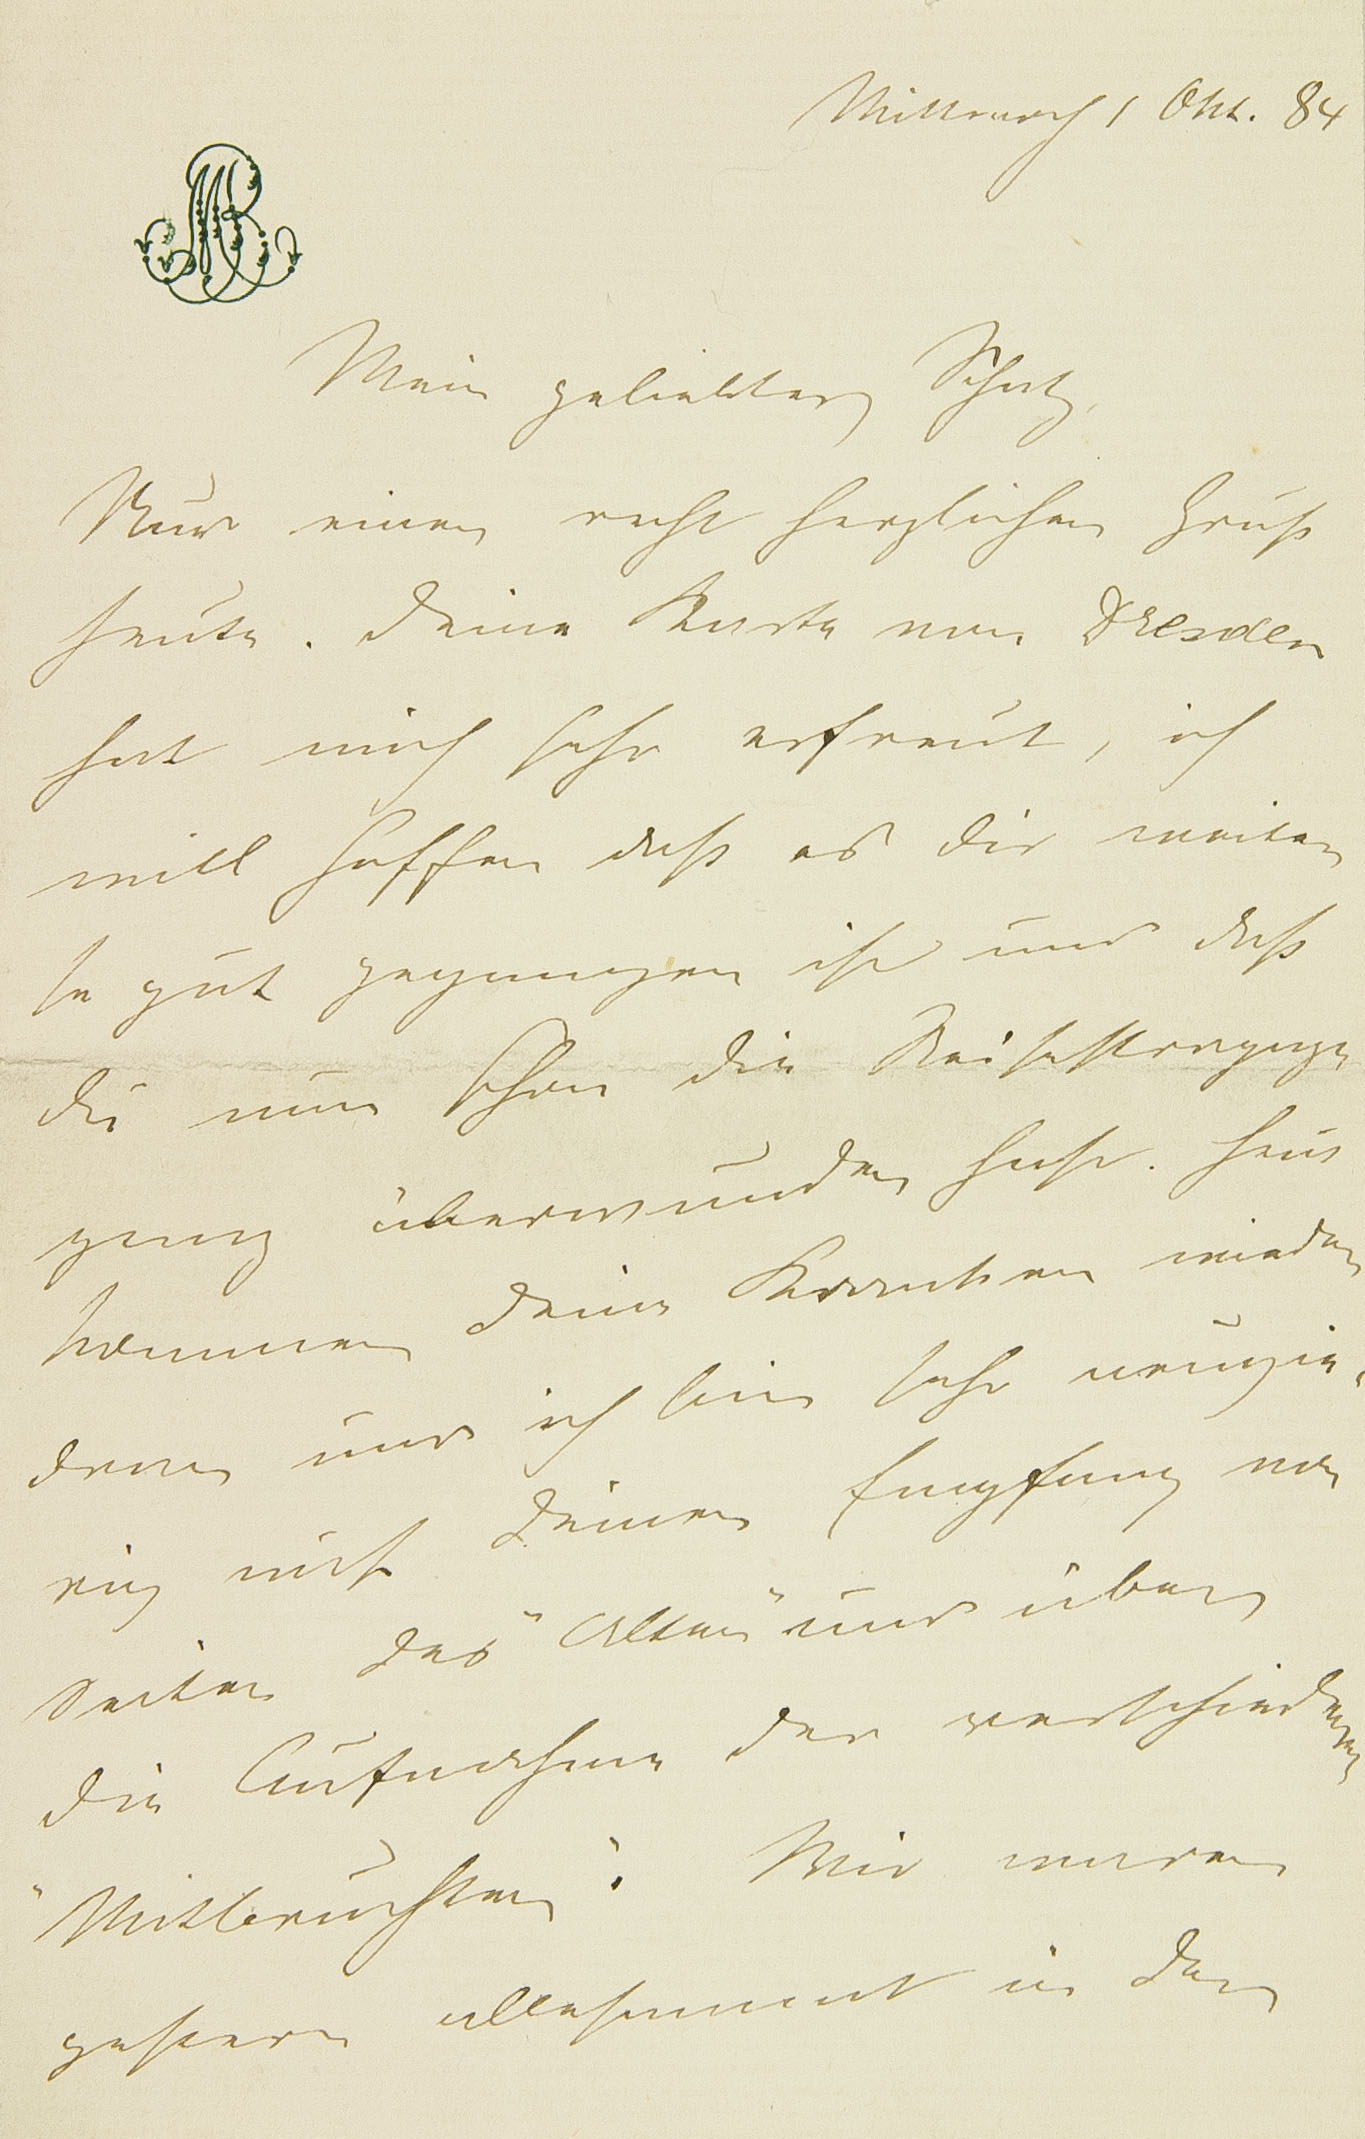 Mittwoch 1 Okt. 84
MB
Mein geliebter Schatz,
Nur einen recht herzlichen Gruß
heute. Deine Karte von Dresden
hat mich sehr erfreut, ich
will hoffen daß es dir weiter
so gut gegangen ist und daß
du nun schon die Reisestrapaze
ganz überwunden hast. Heut
kommen deine Kranken wieder
dran und ich bin sehr neugie-
rig auf deinen Empfang von
Seiten des "Alten" und über
die Aufnahme der verschiedenen
"Mitbrachten". Wir waren
gestern allesammt in der